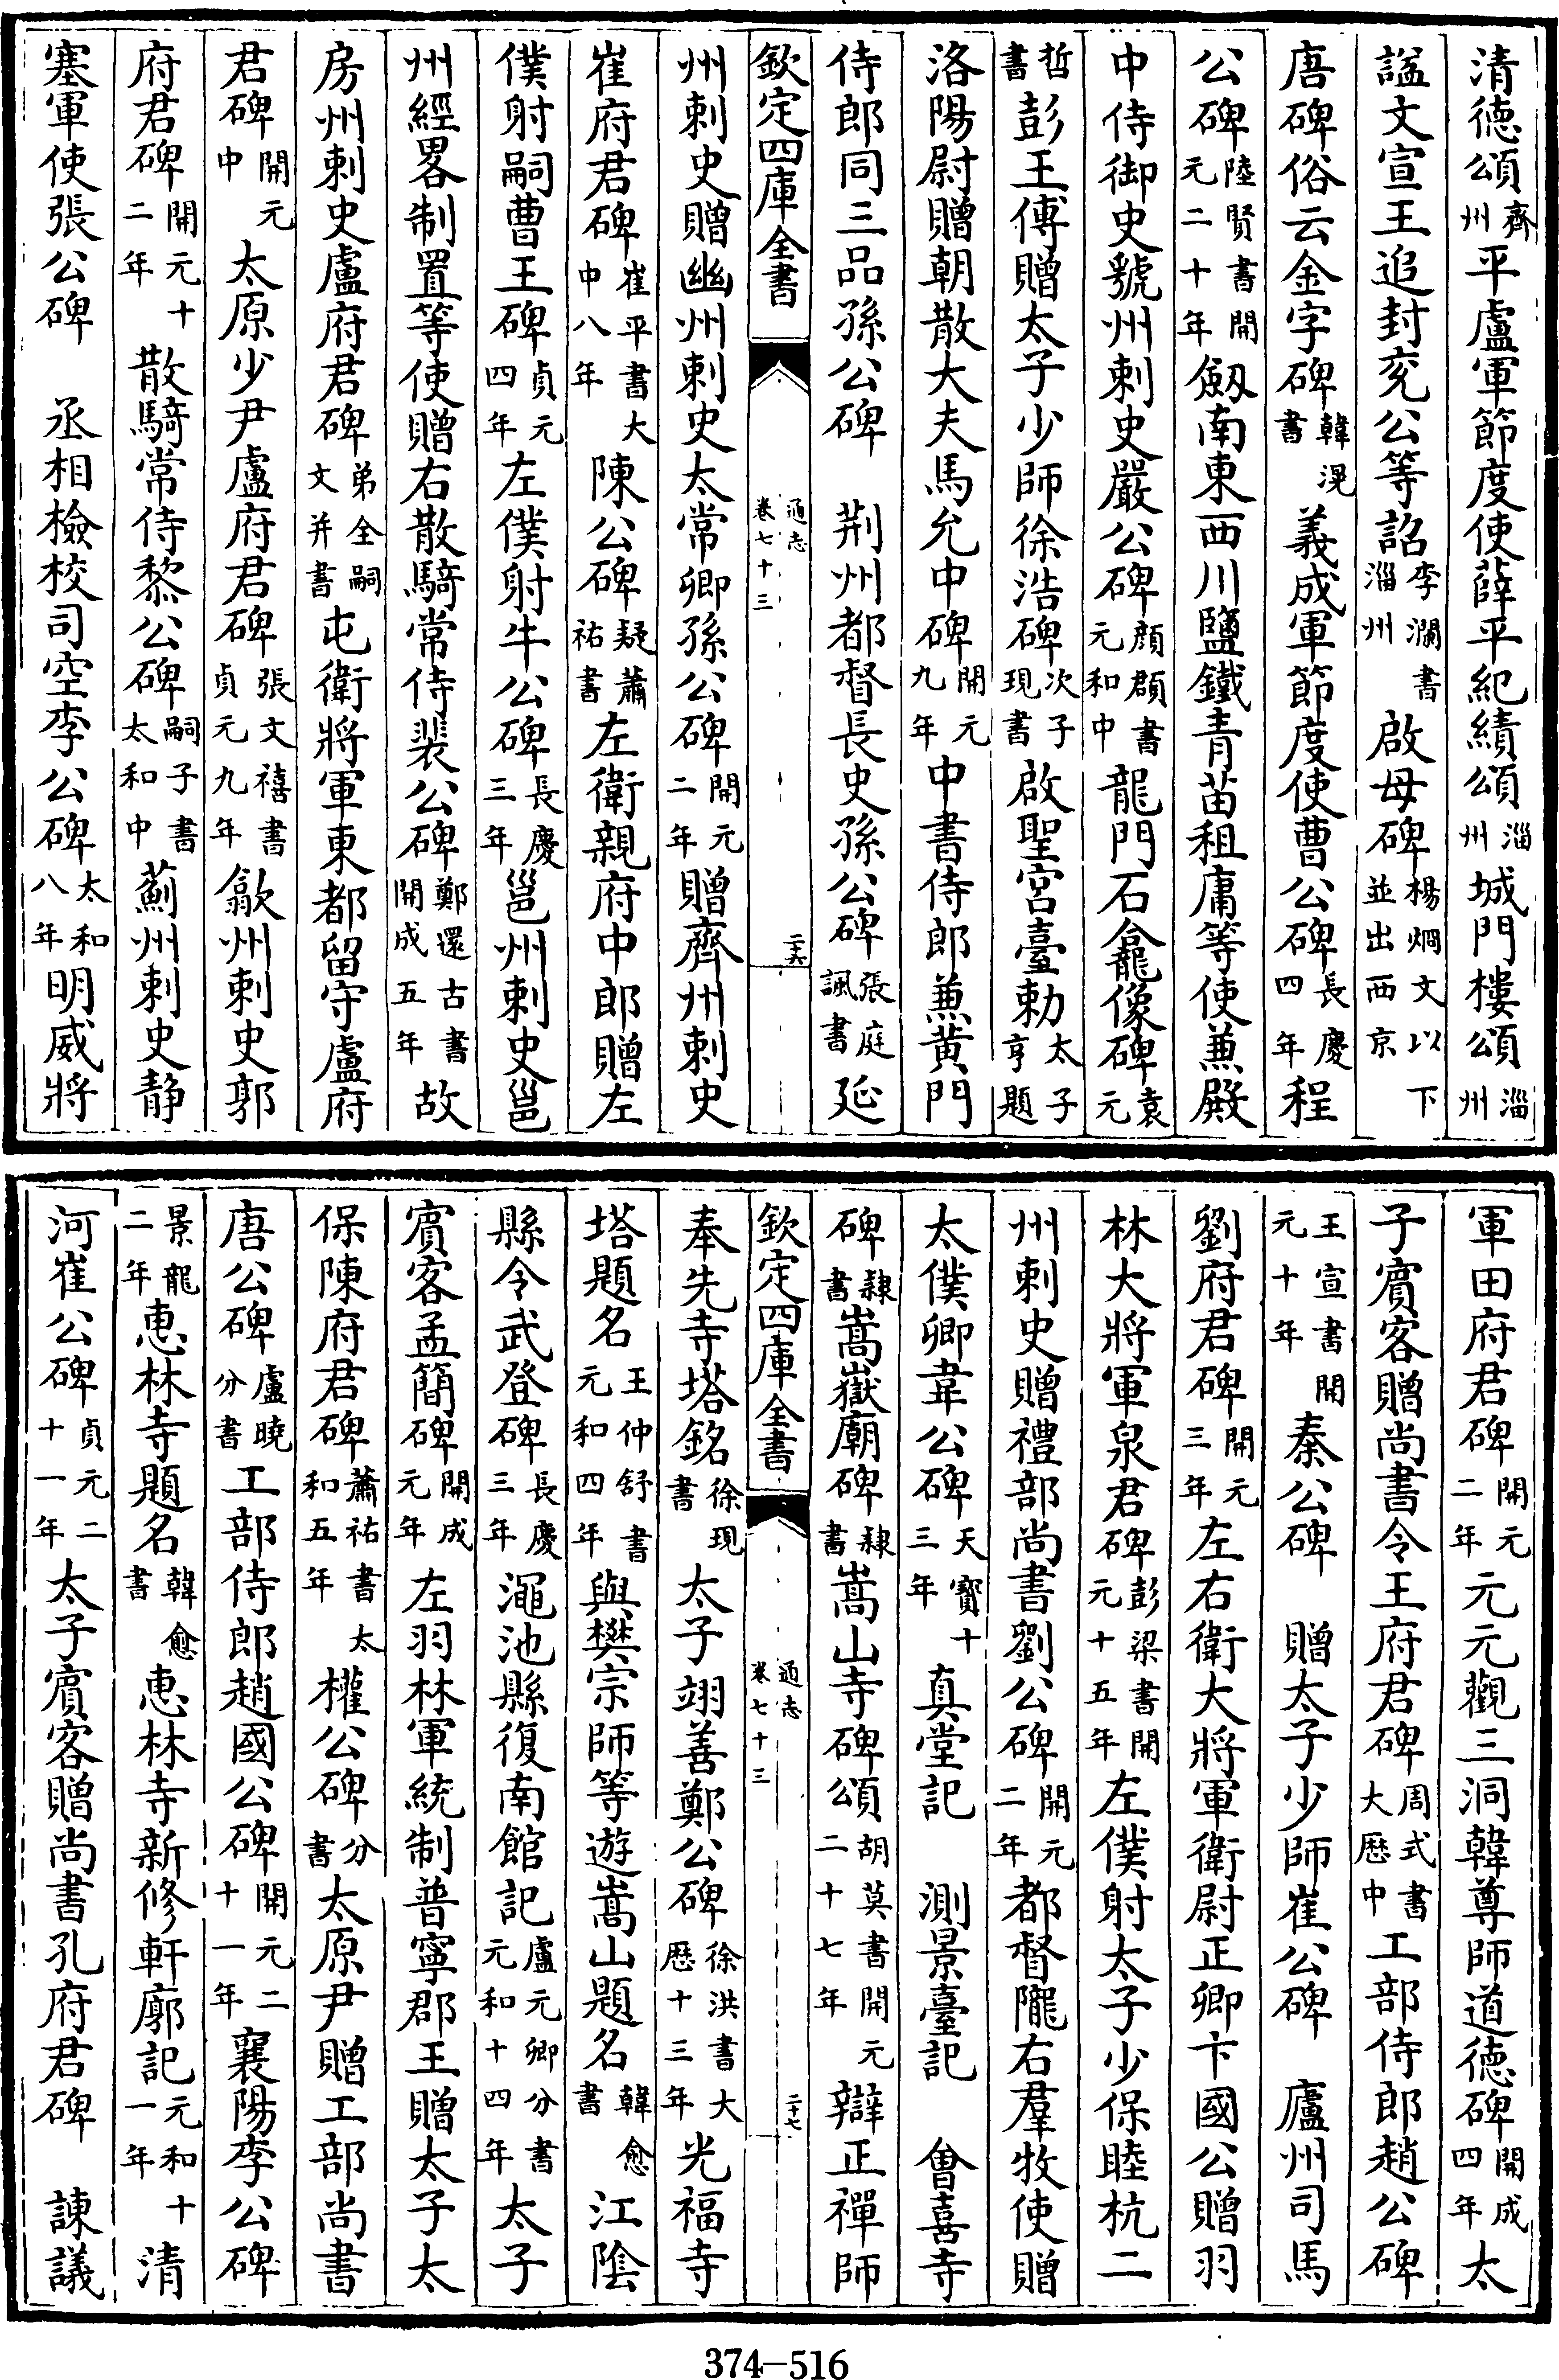 清德頌齊州平盧軍節度使薛平紀績頌淄州城門樓頌淄州
諡文宣王追封兖公等詔李瀾書淄州啟母碑楊炯文以下並出西京
唐碑俗云金字碑韓滉書義成軍節度使曹公碑長慶四年程
公碑陸賢書開元二十年劔南東西川鹽鐵青苗租庸等使兼殿
中侍御史虢州刺史嚴公碑顔頵書元和中龍門石龕像碑袁元
哲書彭王傅贈太子少師徐浩碑次子現書啟聖宮臺勅太子亨題
洛陽尉贈朝散大夫馬允中碑開元九年中書侍郎兼黄門
侍郎同三品孫公碑 荆州都督長史孫公碑張庭諷書延
欽定四庫全書 通志 卷七十三 二十六
州刺史贈幽州刺史太常卿孫公碑開元二年贈齊州刺史
崔府君碑崔平書大中八年陳公碑疑蕭祐書左衛親府中郎贈左
僕射嗣曹王碑貞元四年左僕射牛公碑長慶三年邕州刺史邕
州經畧制置等使贈右散騎常侍裴公碑鄭還古書開成五年故
房州刺史盧府君碑弟全嗣文并書屯衛將軍東都留守盧府
君碑開元中太原少尹盧府君碑張文禧書貞元九年歙州刺史郭
府君碑開元十二年散騎常侍黎公碑嗣子書太和中薊州刺史静
塞軍使張公碑 丞相檢校司空李公碑太和八年明威將
軍田府君碑開元二年元元觀三洞韓尊師道德碑開成四年太
子賓客贈尚書令王府君碑周式書大歴中工部侍郎趙公碑
王宣書開元十年秦公碑 贈太子少師崔公碑 廬州司馬
劉府君碑開元三年左右衛大將軍衛尉正卿卞國公贈羽
林大將軍泉君碑彭梁書開元十五年左僕射太子少保睦杭二
州刺史贈禮部尚書劉公碑開元二年都督隴右羣牧使贈
太僕卿韋公碑天寶十三年真堂記 測景臺記 會喜寺
碑隸書嵩嶽廟碑隸書嵩山寺碑頌胡莫書開元二十七年辯正禪師
欽定四庫全書 通志 卷七十三 二十七
奉先寺塔銘徐現書太子翊善鄭公碑徐洪書大歴十三年光福寺
塔題名王仲舒書元和四年與樊宗師等遊嵩山題名韓愈書江陰
縣令武登碑長慶三年澠池縣復南館記盧元卿分書元和十四年太子
賓客孟簡碑開成元年左羽林軍統制普寧郡王贈太子太
保陳府君碑蕭祐書太和五年權公碑分書太原尹贈工部尚書
唐公碑盧曉分書工部侍郎趙國公碑開元二十一年襄陽李公碑
景龍二年惠林寺題名韓愈書惠林寺新修軒廓記元和十一年清
河崔公碑貞元二十一年太子賓客贈尚書孔府君碑 諫議
374-516